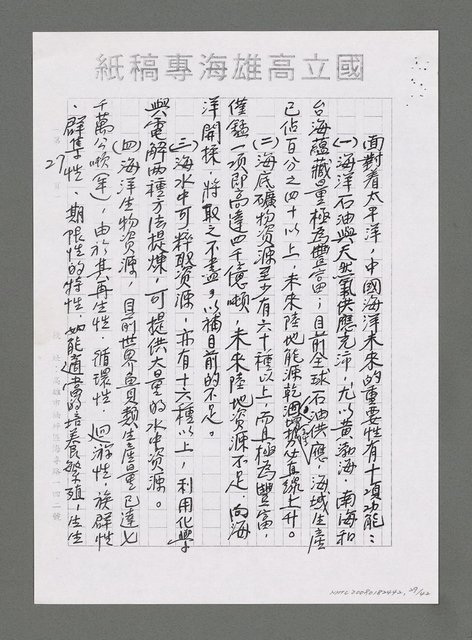 國立高雄海專稿紙
面對着太平洋，中國海洋未來的重要性有十項功能：
(一)海洋石油與天然氣供應充沛，尤以黃渤海，南海和
台海蘊藏量極為豐富；目前全球石油供應，海域生產
已佔百分之四十以上，未來陸地能源乾涸，增佔直線上升。
(二)海底礦物資源至少有六十種以上，而且極為豐富，
僅錳一項即高達四千億噸，未來陸地資源不足，向海
洋開採，將取之不盡，以補目前的不足。
(三)海水中可粹取資源，亦有十六種以上，利用化學
與電解兩種方法提煉，可提供大量的水中資源。
(四)海洋生物資源，目前世界魚類生產量已達七
千萬公噸(年)，由於其再生性．循環性．迴游性．族群性
．群集性．期限性的特性，如能適當的培養繁殖，生生
27
NMTL20080182442, 29/42